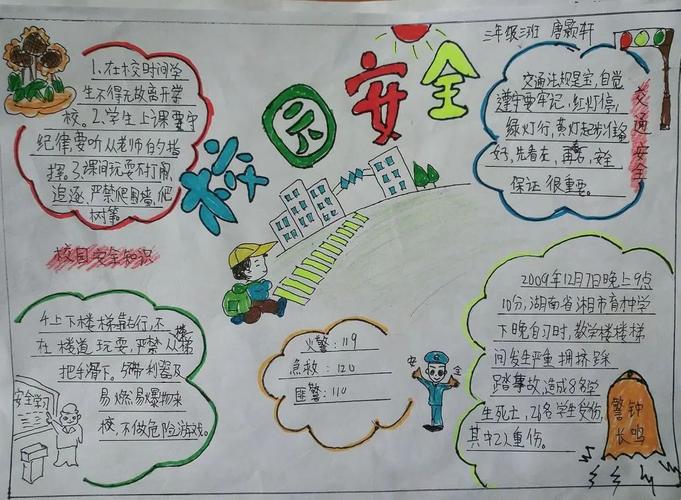 校园安全
三年级三班 唐颢轩
1、在校时间学
生不得无故离开学
校。2、学生上课要守
纪律,要听从老师的指
挥。3、课间玩耍不打闹,
追逐,严禁爬围墙、爬
树等。
校园安全知识
交通法规是宝,自觉
遵守要牢记,红灯停,
绿灯行,黄灯起步准备
好,先看左,再看右,安全
保证很重要。
交通安全
4、上下楼梯靠右行,不
在楼道玩耍,严禁从楼梯
把手滑下。5、不带利器及
易燃易爆物来
校,不做危险游戏。
安全学习
火警:119
急救:120
匪警:110
安全
2009年12月7日晚上9点
10分,湖南省湘市育种学
下晚自习时,教学楼楼梯
间发生严重拥挤踩
踏事故,造成8名学
生死亡,26名学生受伤,
其中2人重伤。
警钟
长鸣